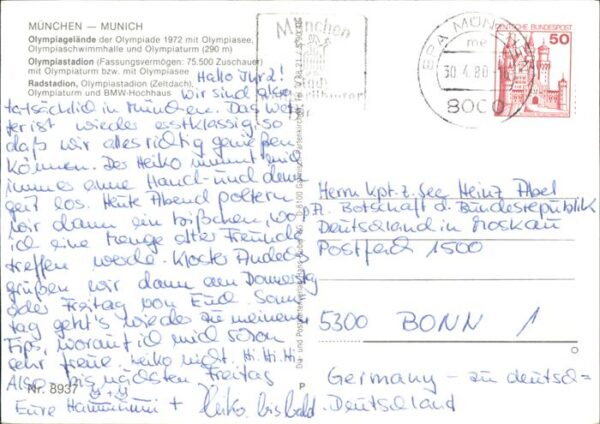 MÜNCHEN — MUNICH
Olympiagelände der Olympiade 1972 mit Olympiasee,
Olympiaschwimmhalle und Olympiaturm (290 m)
Olympiastadion (Fassungsvermögen: 75.500 Zuschauer)
mit Olympiaturm bzw. mit Olympiasee
Radstadion, Olympiastadion (Zeltdach),
Olympiaturm und BMW-Hochhaus
Hallo
wir sind also
tatsächlich in München. Das Wet
ter ist wieder erstklassig, so
daß wir alles richtig genießen
können. Der Heiko nimmt mich
immer ohne Hand- und
geld los. Heute Abend poltern
wir dann ein bißchen, wo
ich eine Menge alter Freunde
treffen werde. Kloster Andechs
grüßen wir dann am Donnerstag
oder Freitag von Euch. Sonn
tag geht's wieder zu meinener
Fips, worauf ich mich schon
sehr freue. Heiko nicht. Hi. Hi. Hi
Also bis nächsten Freitag
Eure + Heiko. bis bald.
Nr. 8937
P
München
8000
30.4.80
DEUTSCHE BUNDESPOST
50
Herrn Kpt. z. See Heinz Abel
Botschaft d. Bundesrepublik
Deutschland in Moskau
Postfach 1500
5300 BONN 1
Germany - zu deutsch =
Deutschland